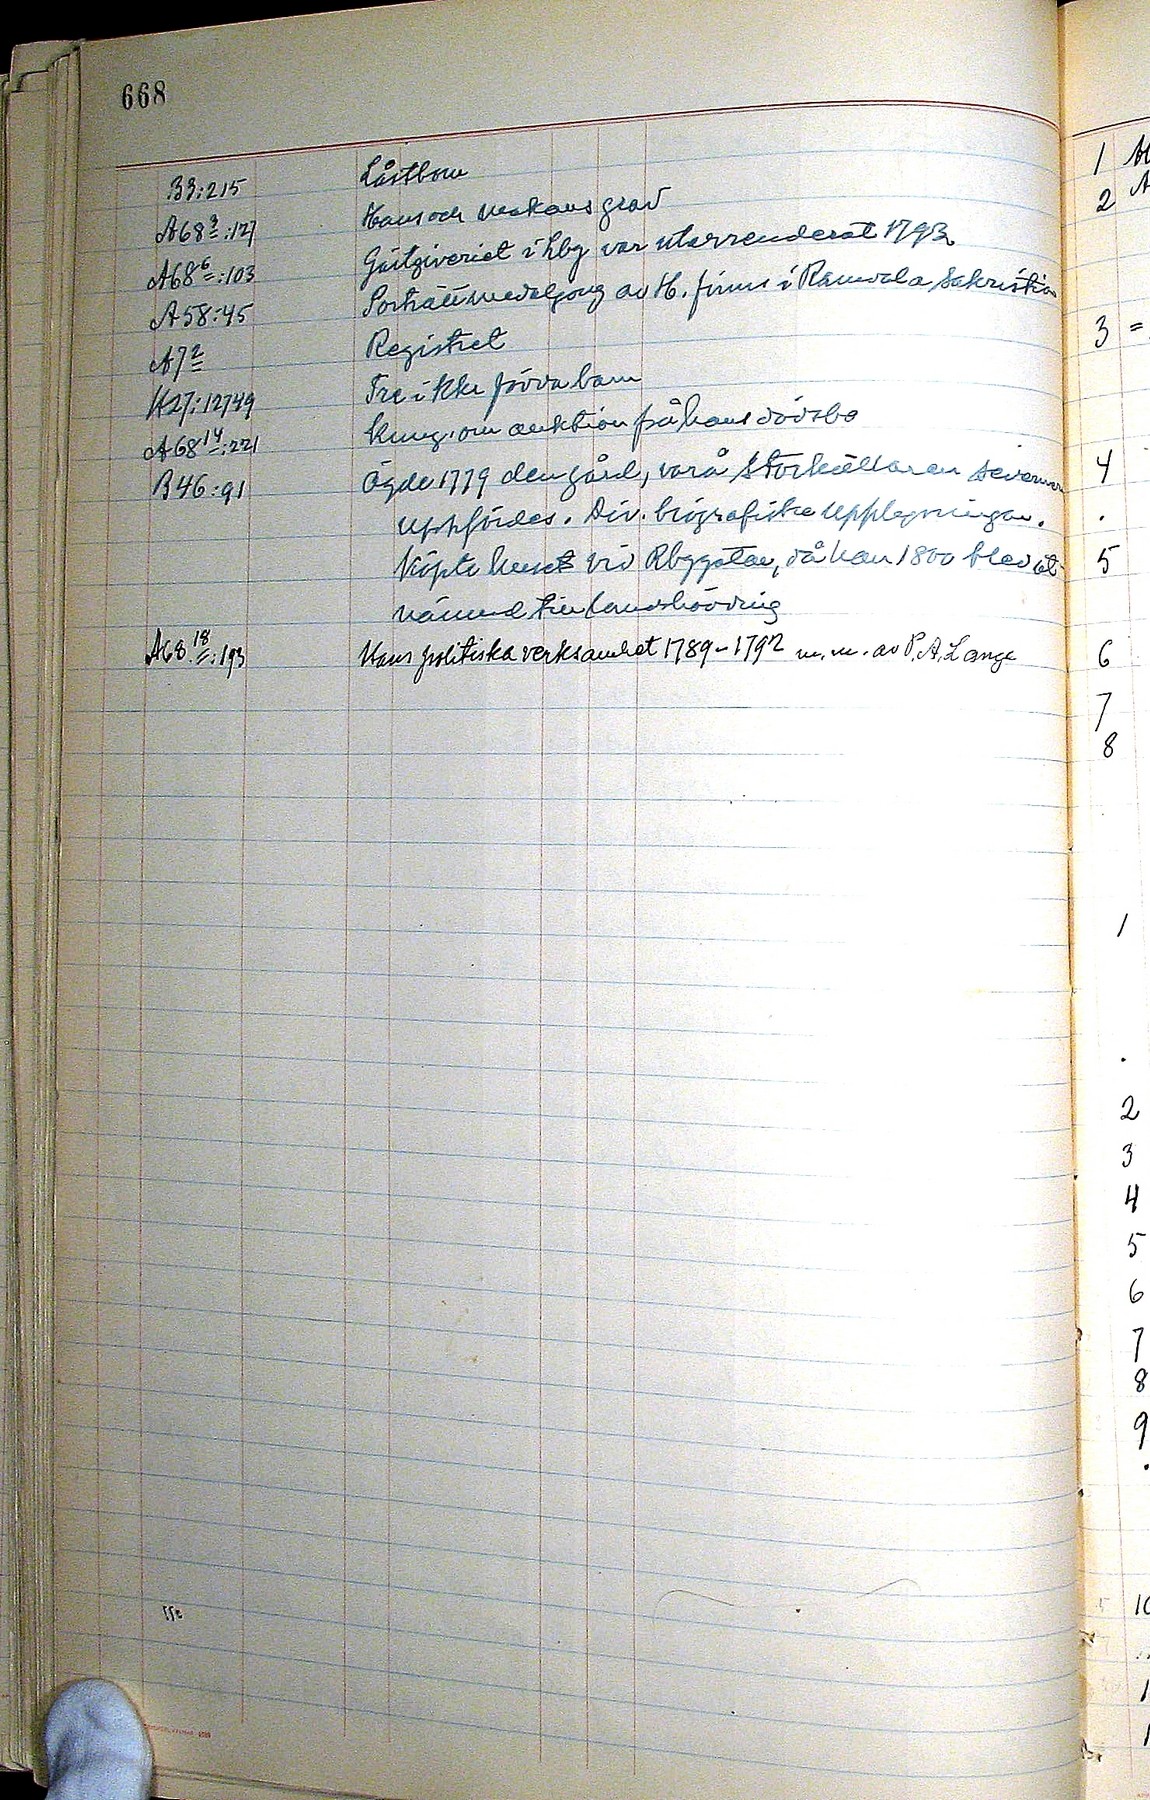 668
B3:215 Låstbom
A68 3:127 Hans och makans grav
A68 6:103 Gästgiveriet i Lbg var utarrenderat 1793
A58:45 Porträttmedaljong av H. finns i Råmvala Sakristia
A7 2 Registret
K27:12749 Tre ickeförra barn
A68 14:221 Kung. om auktion på hans dödsbo
B46:91 Ägde 1779 den gård, varå Storkällaren
uppfördes. Div. biografiska upplysningar.
Köpte huset vid Rbggatan, då han 1800 blev ut-
nämnd till landshövding
A68 18:193 Hans politiska verksamhet 1789-1792 m. m. av P. A. Lange
1
2
3 =
4
.
5
6
7
8
1
.
2
3
4
5
6
7
8
9
10